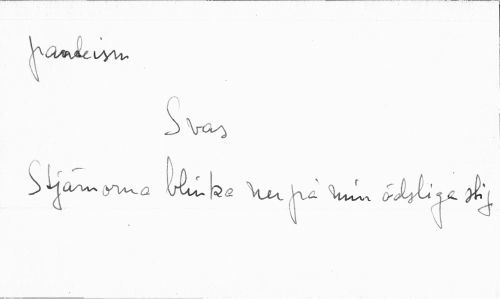 panteism
Svas
Stjärnorna blinka ner på min ödsliga stig